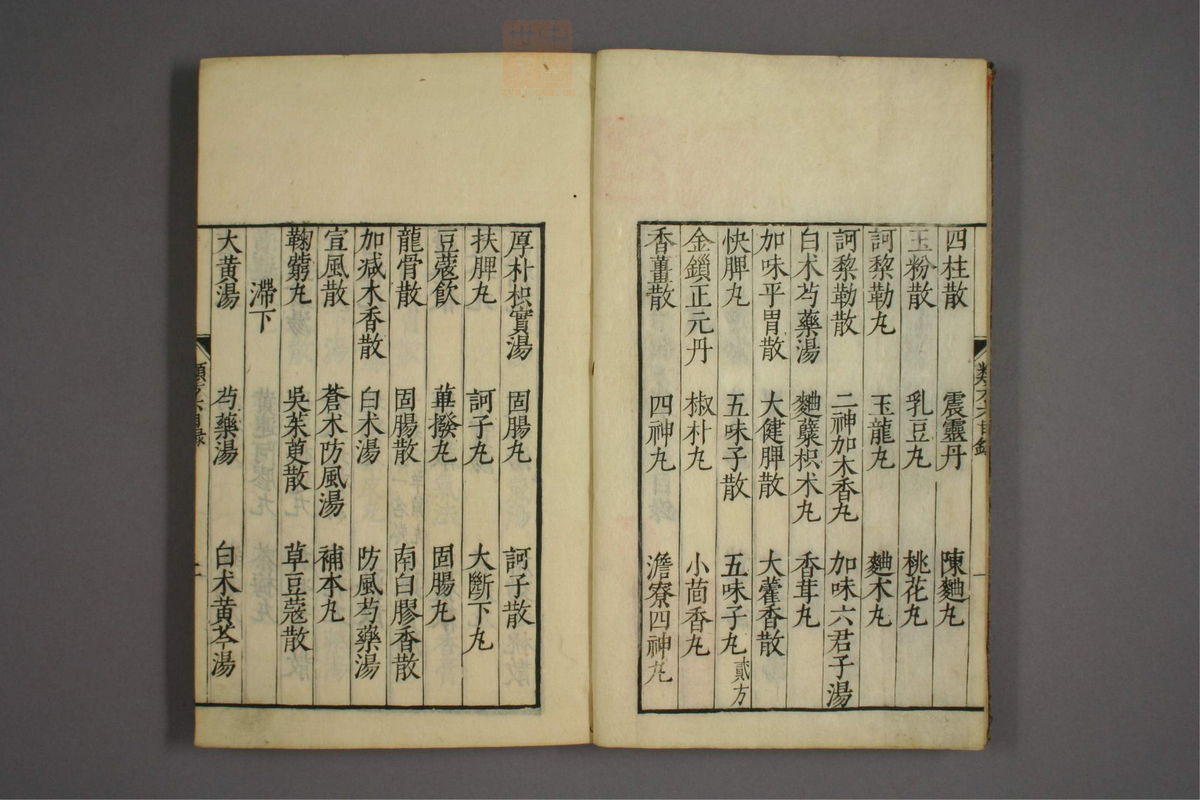 四柱散 震靈丹 陳麯丸
玉粉散 乳豆丸 桃花丸
訶黎勒丸 玉龍丸 麯术丸
訶黎勒散 二神加木香丸 加味六君子湯
白术芍藥湯 麯蘗枳术丸 香茸丸
加味平胃散 大健脾散 大藿香散
快脾丸 五味子散 五味子丸貳方
金鎖正元丹 椒朴丸 小茴香丸
香薑散 四神丸 澹寮四神丸
厚朴枳實湯 固腸丸 訶子散
扶脾丸 訶子丸 大斷下丸
豆蔻飲 蓽撥丸 固腸丸
龍骨散 固腸散 南白膠香散
加減木香散 白术湯 防風芍藥湯
宣風散 蒼术防風湯 補本丸
鞠藭丸 吳茱萸散 草豆蔻散
滯下
大黃湯 芍藥湯 白术黃芩湯